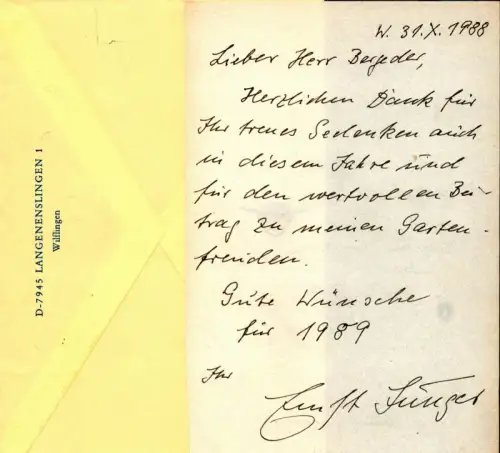 D-7945 LANGENENSLINGEN 1
Wilflingen
W. 31.X.1988
Lieber Herr Bergeder,
Herzlichen Dank für
Ihr treues Gedenken auch
in diesem Jahre und
für den wertvollen Bei-
trag zu meinen Garten-
freuden.
Gute Wünsche
für 1989
Ihr
Ernst Jünger